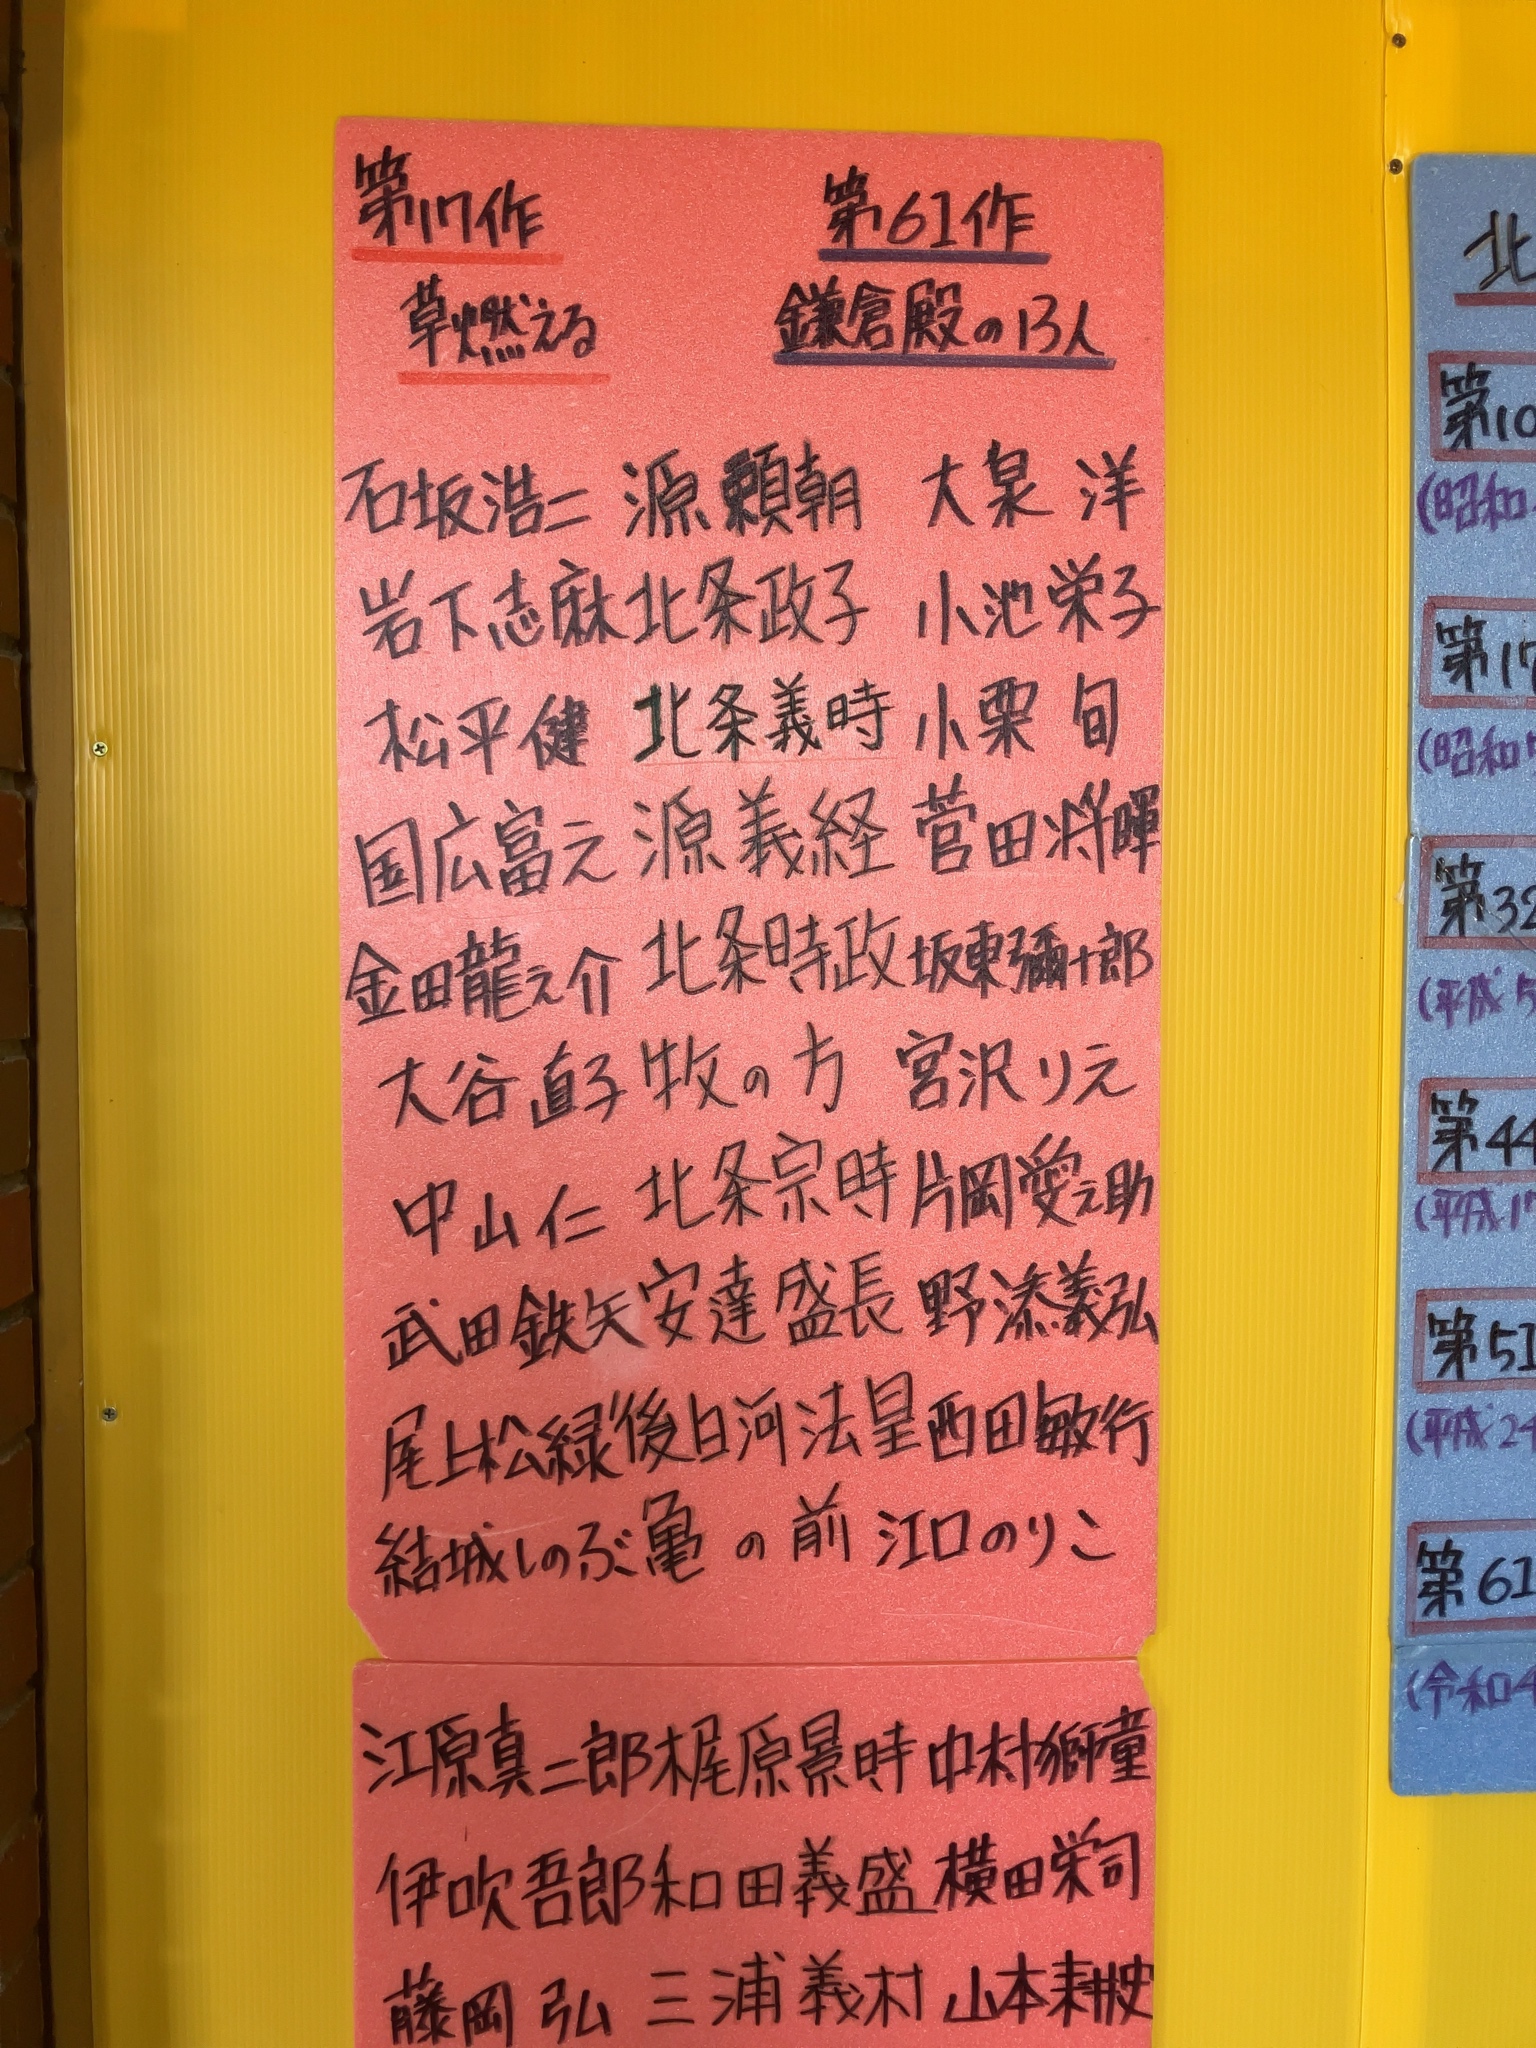 第17作 第61作
草燃える 鎌倉殿の13人
石坂浩二 源頼朝 大泉 洋
岩下志麻 北条政子 小池栄子
松平健 北条義時 小栗 旬
国広富之 源義経 菅田将暉
金田龍之介 北条時政 坂東彌十郎
大谷直子 牧の方 宮沢りえ
中山仁 北条宗時 片岡愛之助
武田鉄矢 安達盛長 野添義弘
尾上松緑 後白河法皇 西田敏行
結城しのぶ 亀の前 江口のりこ
江原真二郎 梶原景時 中村獅童
伊吹吾郎 和田義盛 横田栄司
藤岡 弘 三浦義村 山本耕史
北
第10
(昭和
第17
(昭和5
第32
(平成5
第44
(平成17
第51
(平成24
第61
(令和4